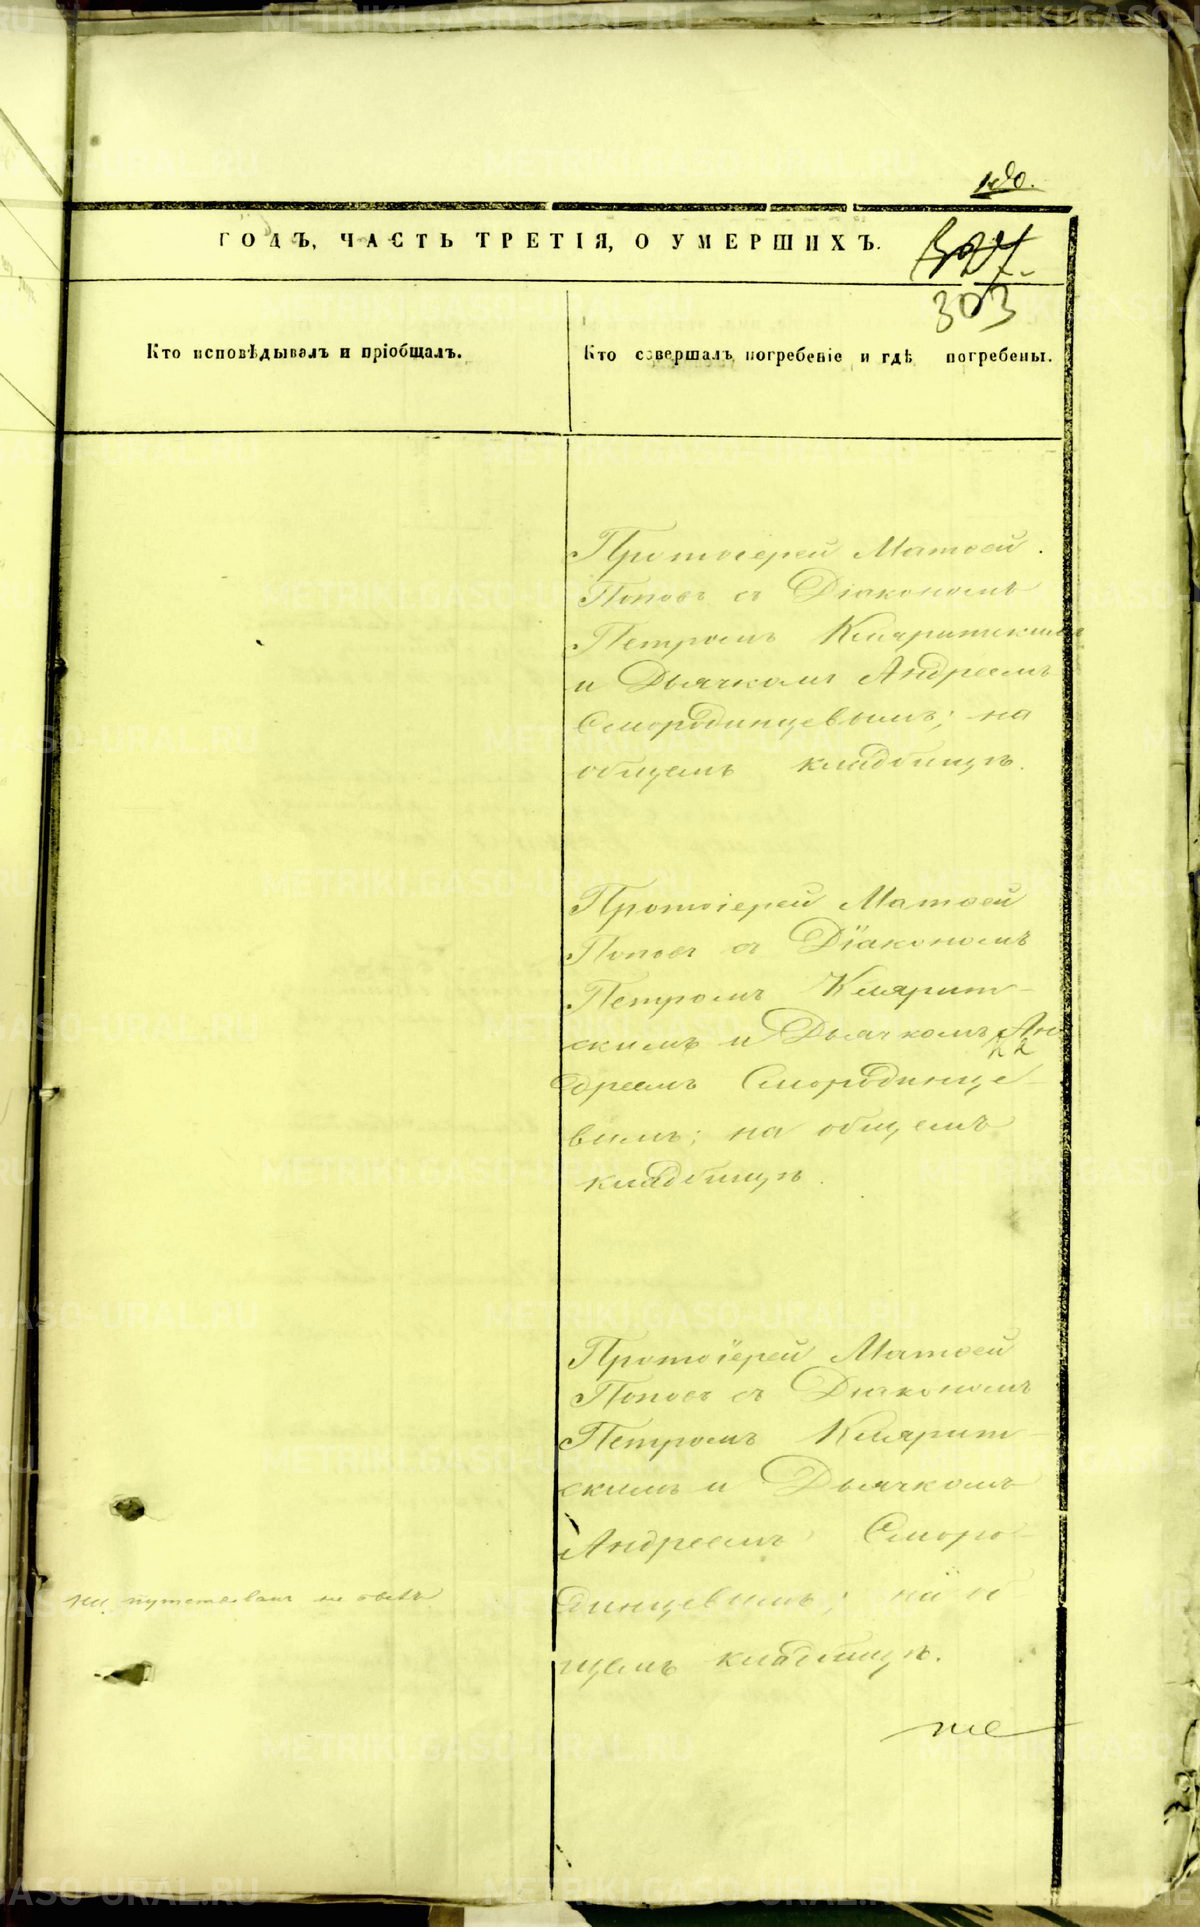 ГОДЪ, ЧАСТЬ ТРЕТІЯ, О УМЕРШИХЪ.
303
Кто исповѣдывалъ и пріобщалъ.
Кто совершалъ погребеніе и гдѣ погребены.
Протоіерей Матѳей
Поповъ съ Діакономъ
Петромъ
и Дьячкомъ Андреемъ
Смородинцевымъ; на
общемъ кладбищѣ.
Протоіерей Матѳей
Поповъ съ Діакономъ
Петромъ Кларит-
скимъ и Дьячкомъ Ан-
дреемъ Смородинце-
вымъ; на общемъ
кладбищѣ.
Протоіерей Матѳей
Поповъ съ Діакономъ
Петромъ Кларит-
скимъ и Дьячкомъ
Андреемъ Сморо-
динцевымъ; на об
щемъ кладбищѣ.
METRIKI.GASO-URAL.RU